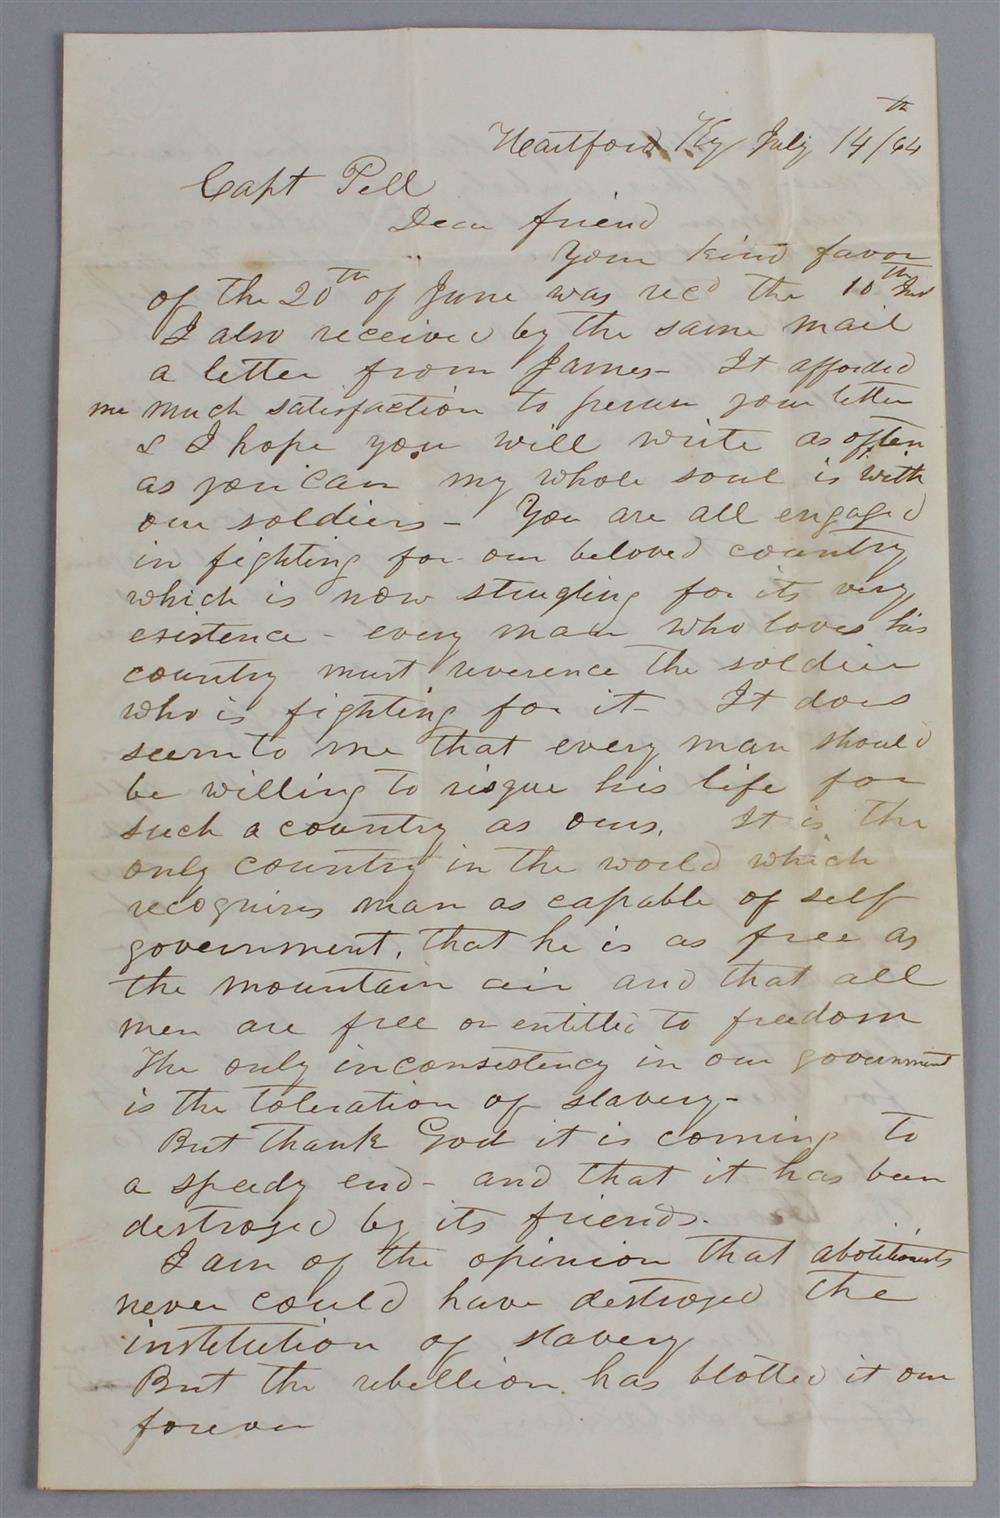 Hartford Ky July 14th/64
Capt Pell
Dear friend
Your kind favor
of the 20th of June was recd the 10th Inst
I also received by the same mail
a letter from James - It afforded
me much satisfaction to peruse your letter
& I hope you will write as often
as you can my whole soul is with
our soldiers - You are all engaged
in fighting for our beloved country
which is now strugling for its very
existence - every man who loves his
country must reverence the soldier
who is fighting for it - It does
seem to me that every man should
be willing to risque his life for
such a country as ours. It is the
only country in the world which
recognises man as capable of self
government, that he is as free as
the mountain air and that all
men are free or entitled to freedom
The only inconsistency in our government
is the toleration of slavery -
But thank God it is coming to
a speedy end - and that it has been
destroyed by its friends.
I am of the opinion that abolitionists
never could have destroyed the
institution of slavery
But the rebellion has blotted it out
forever